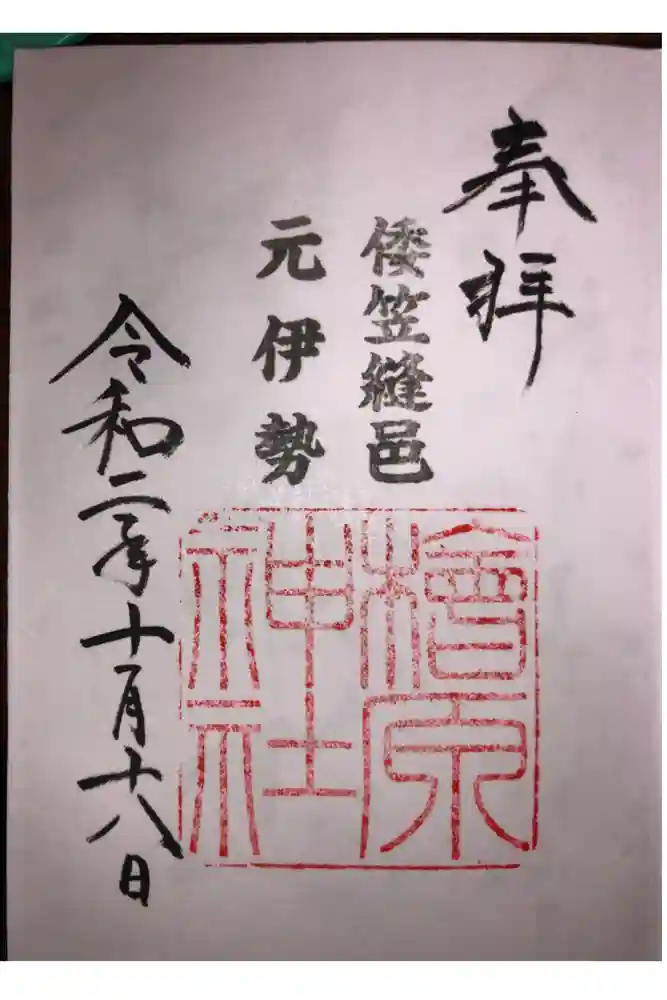 奉拝
倭笠縫邑
元伊勢
檜原
神社
令和二年十月十八日